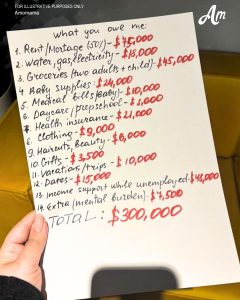 FOR ILLUSTRATIVE PURPOSES ONLY
Amomama
Am
What you owe me:
1. Rent/Mortage (50%) - $75,000
2. Water, gas, electricity - $18,000
3. Groceries (two adults + child) - $45,000
4. Baby supplies: $24,000
5. Medical bills (Baby) - $10,000
6. Daycare/prepschool -
7. Health insurance - $21,000
8. Clothing - $9,000
9. Haircuts, Beauty - $8,000
10. Gifts - $3,500
11. Vacations/trips - $10,000
12. Dates - $15,000
13. Income support while unemployed:
14. Extra (mental burden) - $7,500
TOTAL: $300,000